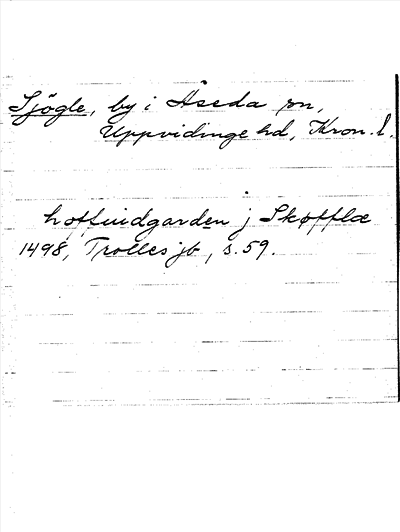 Sjögle, by i Åseda sn,
Uppvidinge hd, Kron. l.
hoffuidgarden j Skøfflæ
1498, Trolles jb, s. 59.